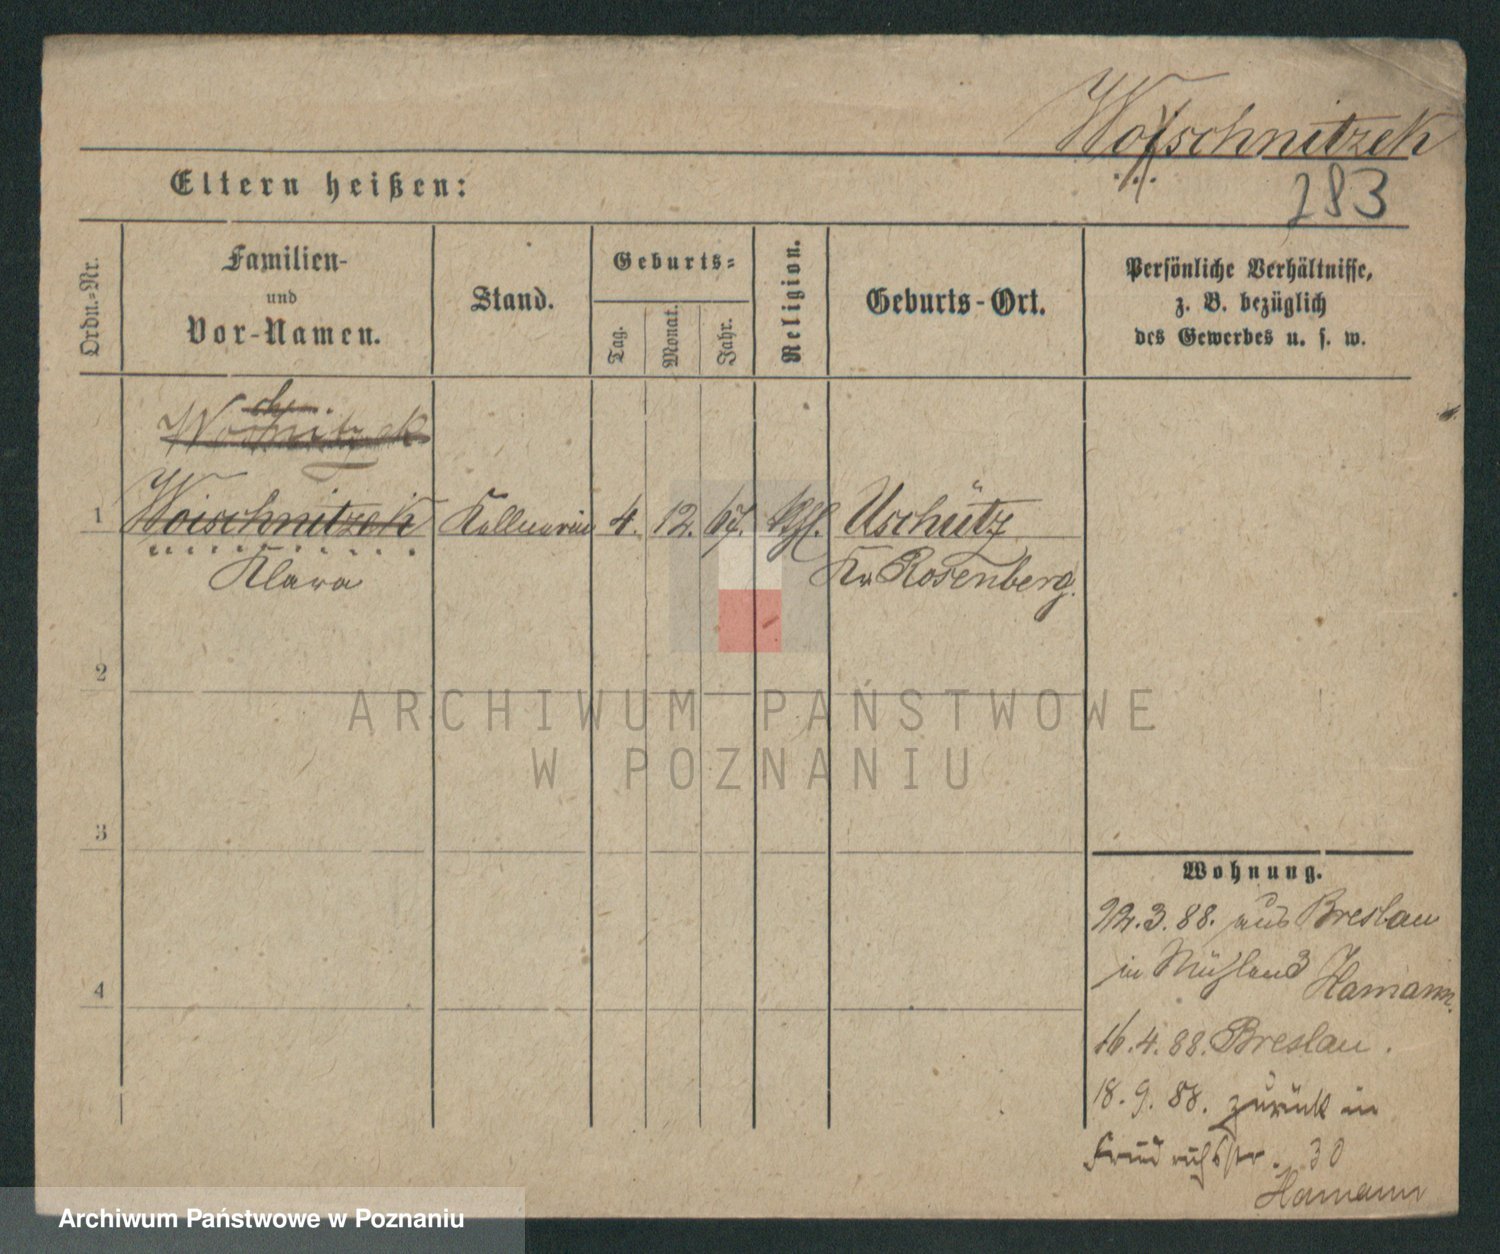 Woischnitzek
283
Eltern heißen:
Ordn.-Nr.
Familien-
und
Vor-Namen.
Stand.
Geburts-
Tag.
Monat.
Jahr.
Religion.
Geburts-Ort.
Persönliche Verhältnisse,
z. B. bezüglich
des Gewerbes u. s. w.
1 Woischnitzek Kellnerin 4. 12. 67. Uschütz
Klara Kr. Rosenberg.
2
3
4
Wohnung.
22.3.88. aus Breslau
in Mühlens 3 Hamann.
16.4.88. Breslau.
18.9.88. zurück in
Friedrichsstr. 30
Hamann
ARCHIWUM PAŃSTWOWE
W POZNANIU
Archiwum Państwowe w Poznaniu